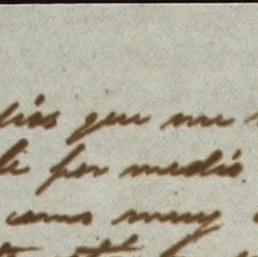 dias que me
le por medio
como muy